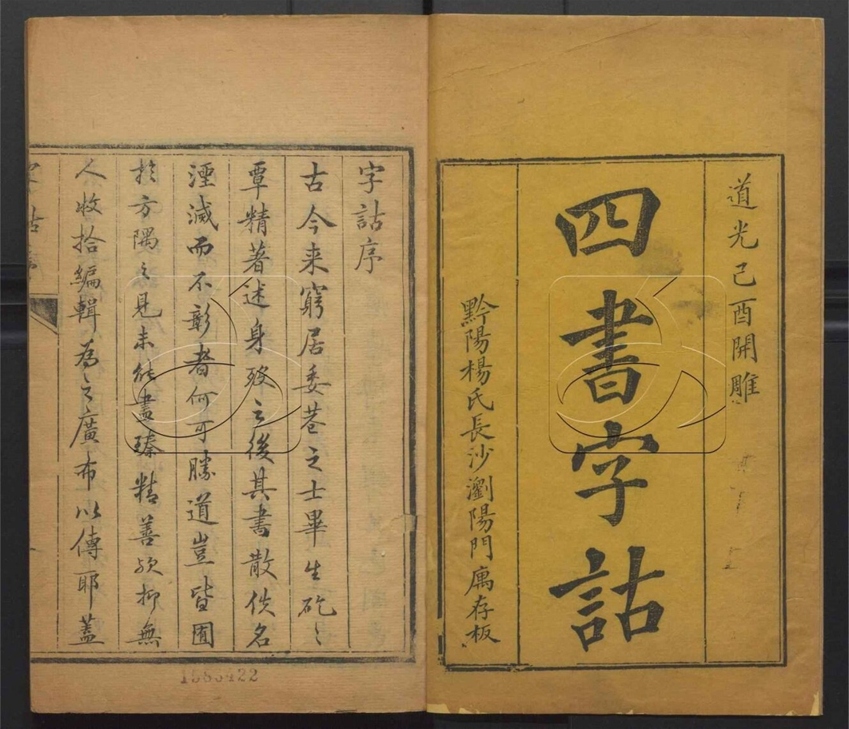 道光己酉開雕
四書字詁
黔陽楊氏長沙瀏陽門寓存板
字詁序
古今来窮居委巷之士畢生矻〻
覃精著述身歿之後其書散佚名
湮滅而不彰者何可勝道豈皆囿
於方隅之見未能盡臻精善歟抑無
人收拾編輯為之廣布以傳耶蓋
字詁序
1583422